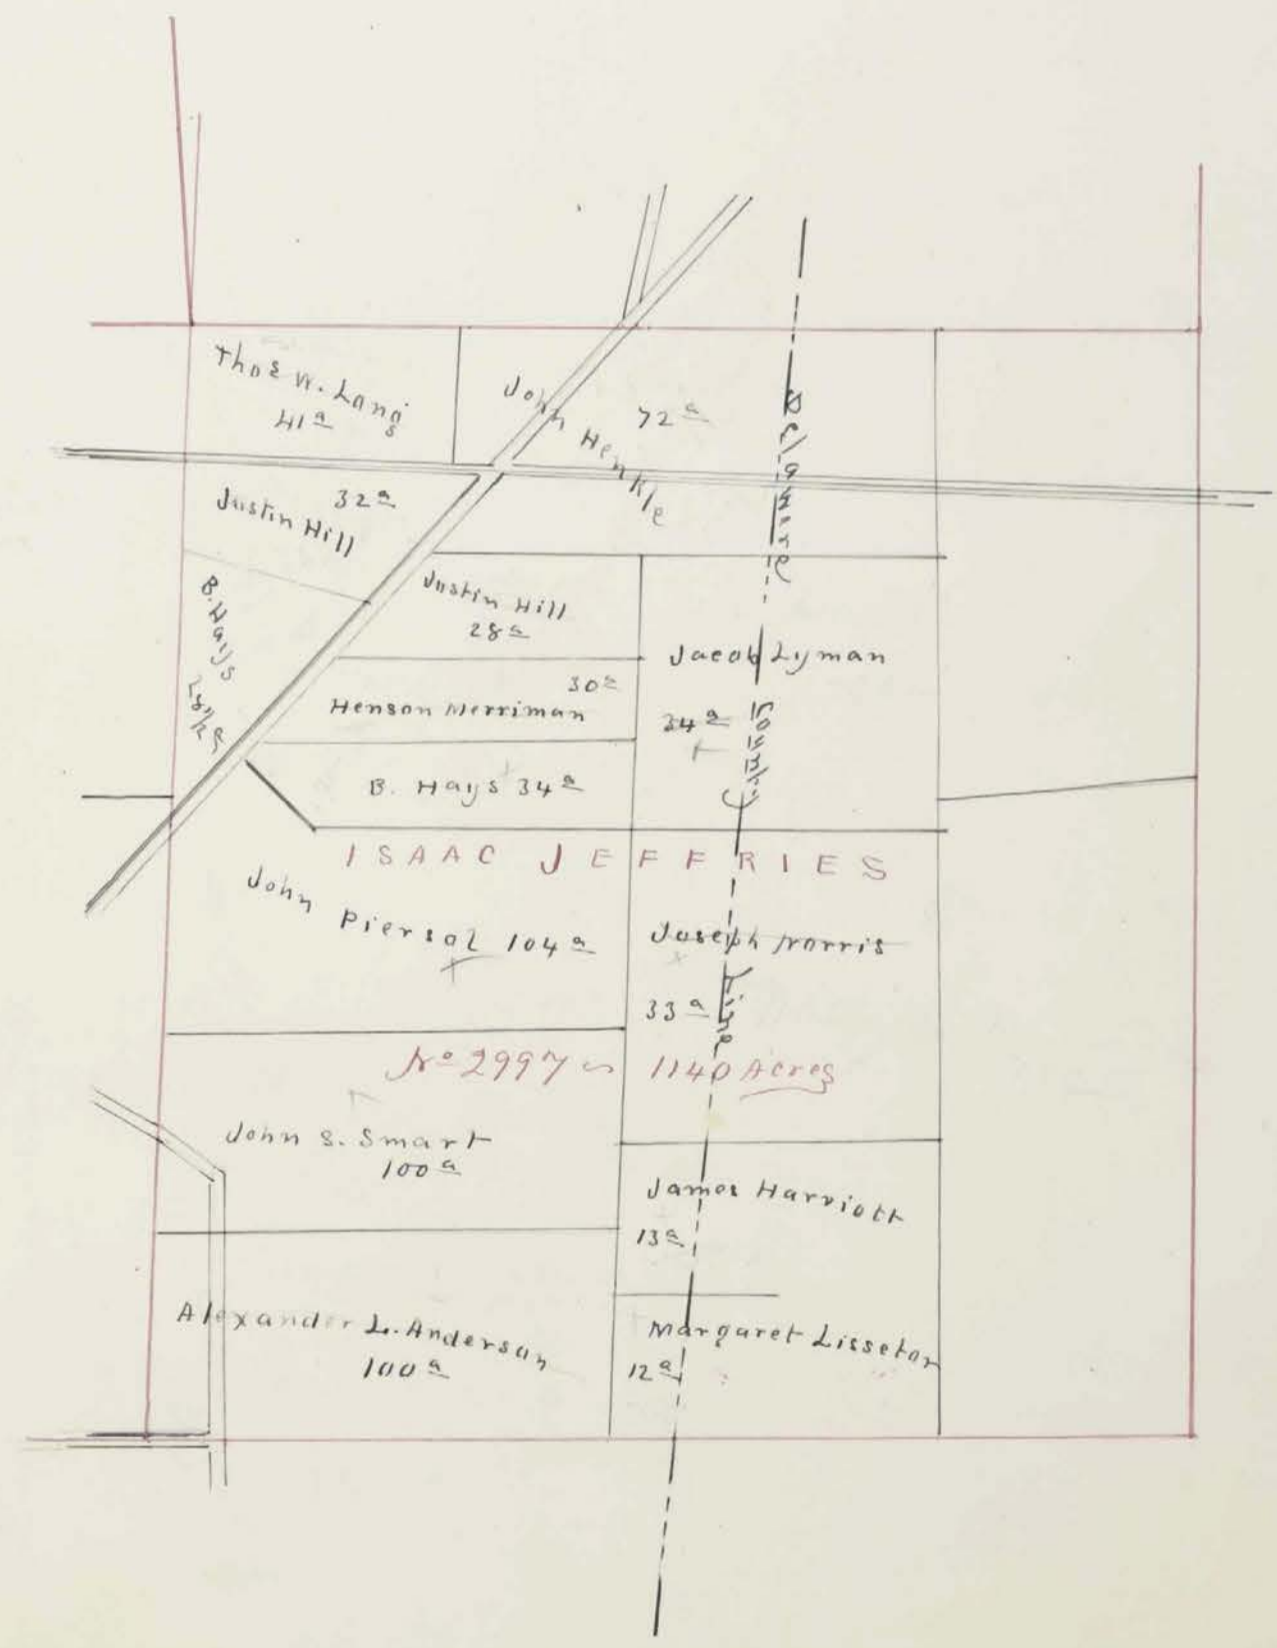 Thos W. Lang's
41a
John Henkle
72a
Delaware County Line
Justin Hill
32a
B. Hays
Justin Hill
28a
Henson Merriman
30a
B. Hays 34a
Jacob Lyman
34a
ISAAC JEFFRIES
John Piersol 104a
Joseph Norris
33a
No 2997 ~ 1140 Acres
John S. Smart
100a
James Harriott
13a
Alexander L. Anderson
100a
Margaret Lisseton
12a